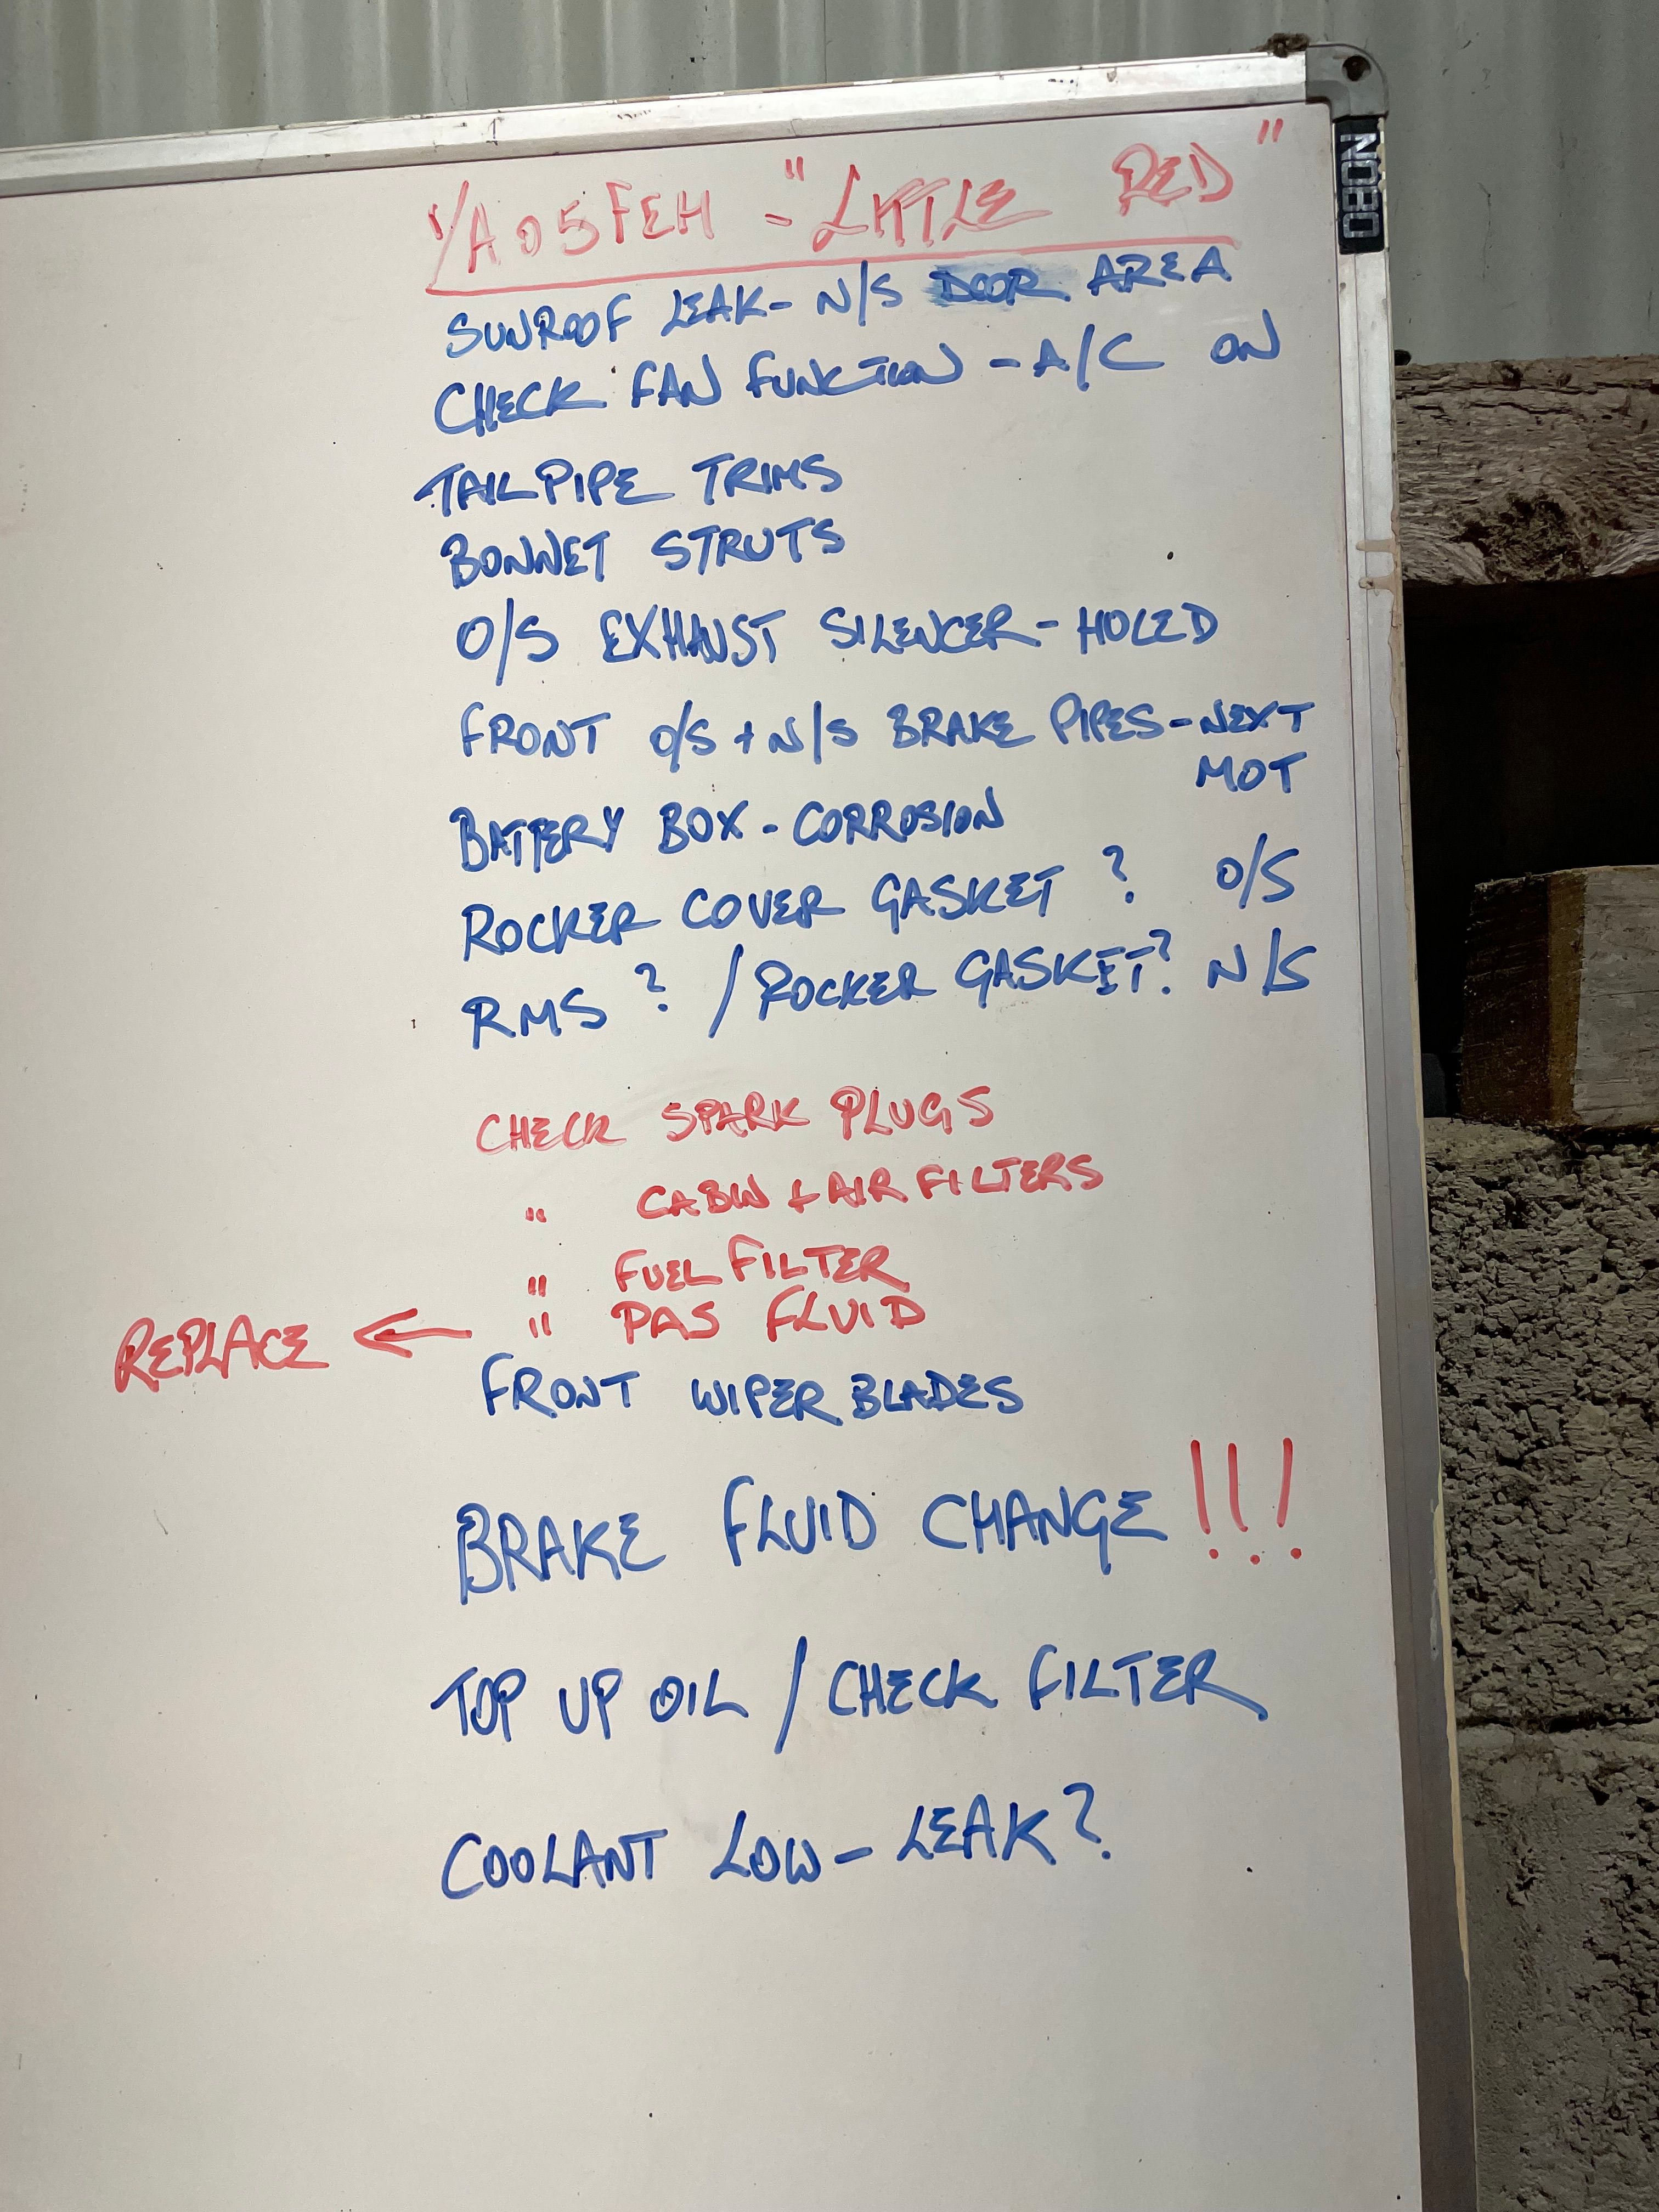 YA05FEH - "LITTLE RED"
SUNROOF LEAK - N/S DOOR AREA
CHECK FAN FUNCTION - A/C ON
TAILPIPE TRIMS
BONNET STRUTS
O/S EXHAUST SILENCER - HOLED
FRONT O/S + N/S BRAKE PIPES - NEXT
MOT
BATTERY BOX - CORROSION
ROCKER COVER GASKET ? O/S
RMS ? / ROCKER GASKET? N/S
CHECK SPARK PLUGS
" CABIN + AIR FILTERS
" FUEL FILTER
REPLACE ← " PAS FLUID
FRONT WIPER BLADES
BRAKE FLUID CHANGE !!!
TOP UP OIL / CHECK FILTER
COOLANT LOW - LEAK?
NOBO